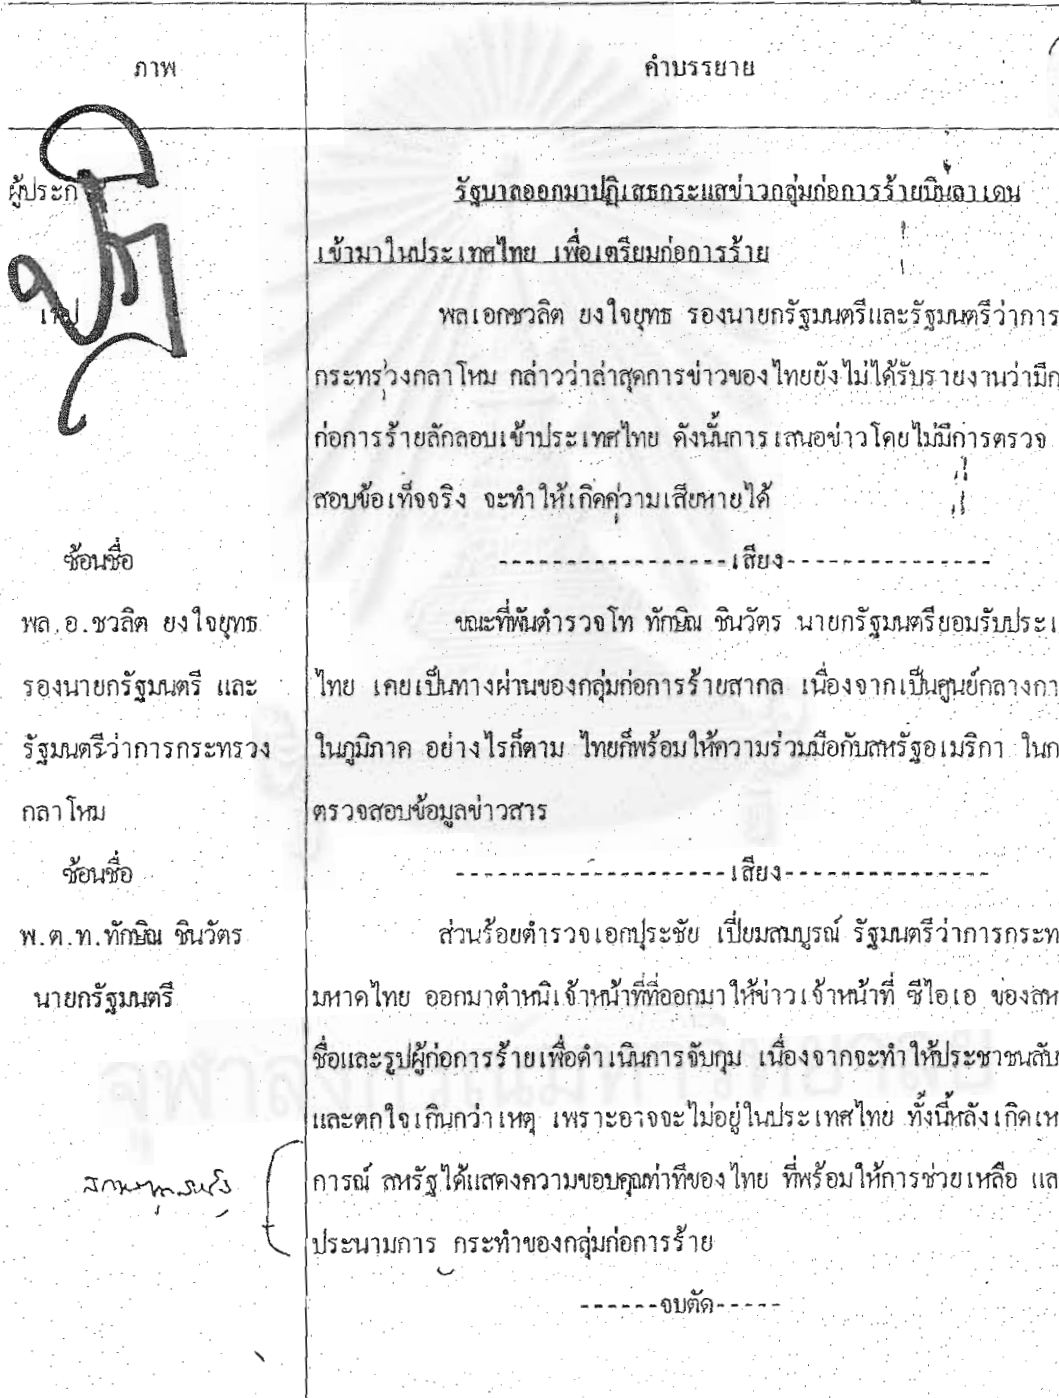 ภาพ
คำบรรยาย
ผู้ประก
รัฐบาลออกมาปฏิเสธกระแสข่าวกลุ่มก่อการร้ายบินลาเดน
เข้ามาในประเทศไทย เพื่อเตรียมก่อการร้าย
เทป
พลเอกชวลิต ยงใจยุทธ รองนายกรัฐมนตรีและรัฐมนตรีว่าการ
กระทรวงกลาโหม กล่าวว่าล่าสุดการข่าวของไทยยังไม่ได้รับรายงานว่ามีก
ก่อการร้ายลักลอบเข้าประเทศไทย ดังนั้นการเสนอข่าวโดยไม่มีการตรวจ
สอบข้อเท็จจริง จะทำให้เกิดความเสียหายได้
ซ้อนชื่อ
-----------------เสียง---------------
พล.อ.ชวลิต ยงใจยุทธ
ขณะที่พันตำรวจโท ทักษิณ ชินวัตร นายกรัฐมนตรียอมรับประเ
รองนายกรัฐมนตรี และ
ไทย เคยเป็นทางผ่านของกลุ่มก่อการร้ายสากล เนื่องจากเป็นศูนย์กลางกา
รัฐมนตรีว่าการกระทรวง
ในภูมิภาค อย่างไรก็ตาม ไทยก็พร้อมให้ความร่วมมือกับสหรัฐอเมริกา ในก
กลาโหม
ตรวจสอบข้อมูลข่าวสาร
ซ้อนชื่อ
--------------------เสียง---------------
พ.ต.ท.ทักษิณ ชินวัตร
ส่วนร้อยตำรวจเอกปุระชัย เปี่ยมสมบูรณ์ รัฐมนตรีว่าการกระท
นายกรัฐมนตรี
มหาดไทย ออกมาตำหนิเจ้าหน้าที่ที่ออกมาให้ข่าวเจ้าหน้าที่ ซีไอเอ ของสห
ชื่อและรูปผู้ก่อการร้ายเพื่อดำเนินการจับกุม เนื่องจากจะทำให้ประชาชนสับ
และตกใจเกินกว่าเหตุ เพราะอาจจะไม่อยู่ในประเทศไทย ทั้งนี้หลังเกิดเห
การณ์ สหรัฐได้แสดงความขอบคุณท่าทีของไทย ที่พร้อมให้การช่วยเหลือ แล
ประนามการ กระทำของกลุ่มก่อการร้าย
------จบตัด-----